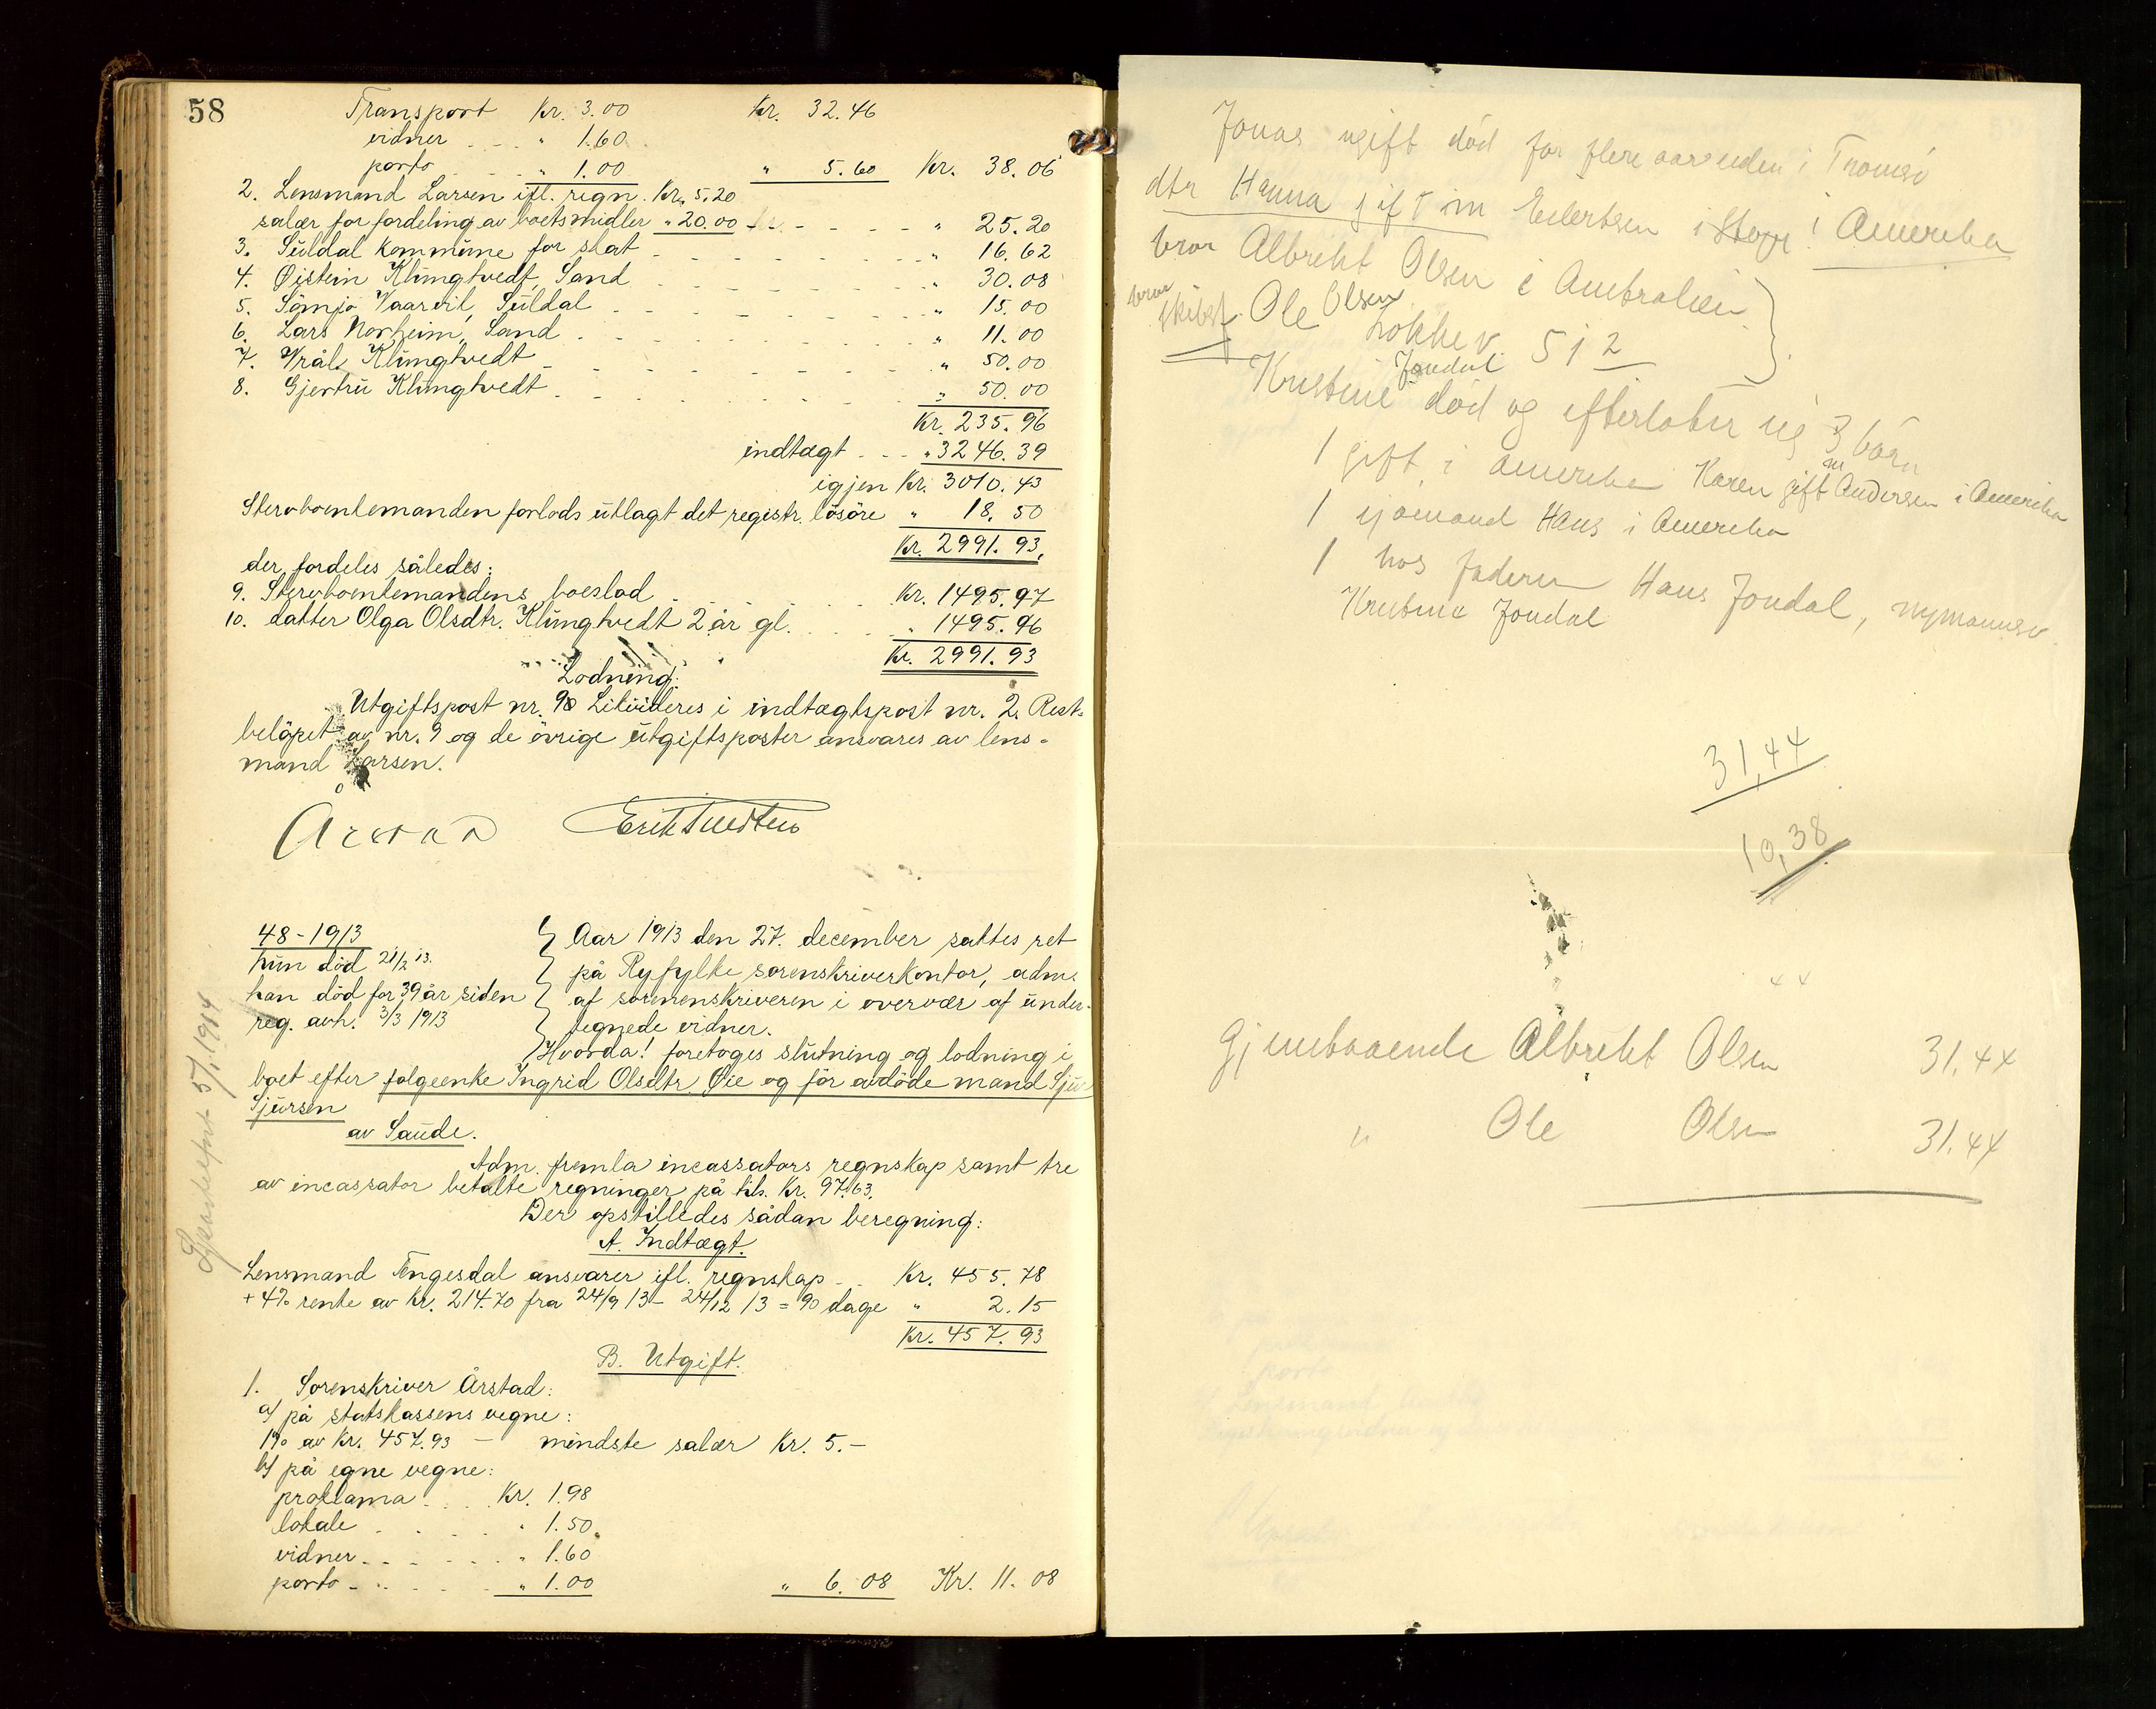 58
Transport Kr. 3.00 Kr. 32.46
vidner " 1.60
porto " 1.00 " 5.60 Kr. 38.06
2. Lensmand Larsen ifl. regn. Kr. 5.20
salær for fordeling av boetsmidler " 20.00 " 25.20
3. Suldal kommune for skat " 16.62
4. Øistein Klungtvedt, Sand " 30.08
5. Vaarvik, Suldal " 15.00
6. Lars Norheim, Sand " 11.00
7. Vrål Klungtvedt " 50.00
8. Gjertru Klungtvedt " 50.00
Kr. 235.96
indtægt " 3246.39
igjen Kr. 3010.43
Stervboenkemanden forlods utlagt det registr. løsöre " 18.50
Kr. 2991.93
der fordeles således:
9. Stervboenkemandens boeslod Kr. 1495.97
10. datter Olga Olsdtr. Klungtvedt 2 år gl. " 1495.96
Kr. 2991.93
Lodning:
Utgiftspost nr. 9 Likvideres i indtægtspost nr. 2. Rest-
beløpet av nr. 9 og de övrige utgiftsposter ansvares av lens-
mand Larsen.
48-1913
hun död 21/2 13.
han död for 39 år siden
reg. avh. 3/3 1913
Aar 1913 den 27. december sattes ret
på Ryfylke sorenskriverkontor, adm.
af sorenskriveren i overvær af under-
tegnede vidner.
Hvorda! foretoges slutning og lodning i
boet efter følgeenke Ingrid Olsdtr. Øie og för avdöde mand Sjur
Sjursen
av Saude.
Adm. fremla incassators regnskap samt tre
av incassator betalte regninger på tils. Kr. 97.63.
Der opstilledes sådan beregning:
A. Indtægt.
Lensmand Tengesdal ansvarer ifl. regnskap Kr. 455.78
+ 4% rente av Kr. 214.70 fra 24/9 13 - 24/12 13 = 90 dage " 2.15
Kr. 457.93
B. Utgift.
1. Sorenskriver Årstad:
a/ på statskassens vegne:
1% av Kr. 457.93 - mindste salær Kr. 5.-
b/ på egne vegne:
proklama Kr. 1.98
lokale " 1.50
vidner " 1.60
porto " 1.00 " 6.08 Kr. 11.08
Jonas ugift död for flere aar siden i Tromsö
dtr Hanna gift m Eilertsen i Amerika
bror Albrikt Olsen i Australien
bror Ole Olsen
512
Jondal
Kristine död og efterlater sig 3 barn
1 gift i amerika Karen gift m Andersen i Amerika
1 sjömand Hans i Amerika
1 hos faderen Hans Jondal,
Kristine Jondal
31,44
10,38
44
Albrikt Olsen 31.44
" Ole Olsen 31.44